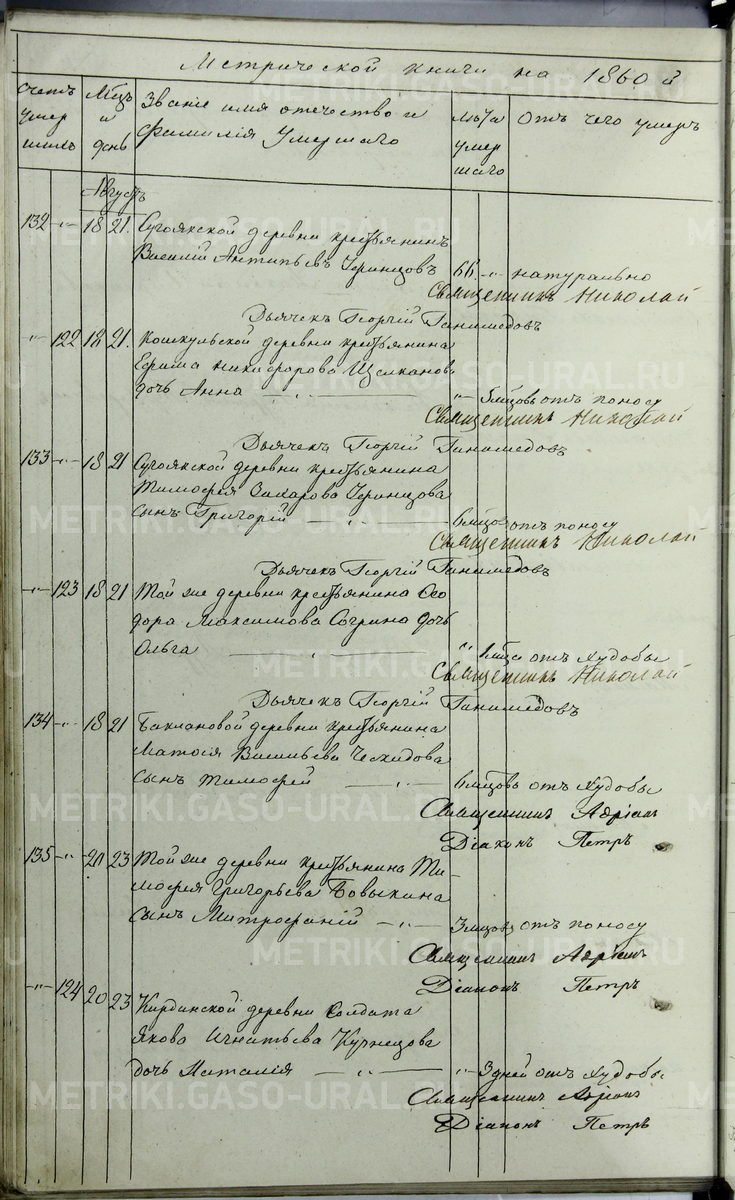 Метрической книги на 1860 й
счетъ умершихъ
Мѣцъ и день
Званіе имя отечество и фамилія Умершаго
лѣта умершаго
отъ чего умеръ
Августъ
132 -"- 18 21. Сугоякской деревни крестьянинъ
Василій Антипьевъ Черницовъ 66 -"- натурально
Священникъ Николай
Дьячекъ Георгій Ганимедовъ
-"- 122 18 21. Кошкульской деревни крестьянина
Ефима Никифорова Щелканов
дочь Анна -"- 5 мѣцовъ отъ поносу
Священникъ Николай
Дьячекъ Георгій Ганимедовъ
133 -"- 18 21 Сугоякской деревни крестьянина
Тимофея Захарова Черницова
сынъ Григорій 6 мѣцов отъ поносу
Священникъ Николай
Дьячекъ Георгій Ганимедовъ
-"- 123 18 21 Той же деревни крестьянина Ѳео
дора Максимова Согрина дочь
Ольга " 1 мѣца отъ худобы
Священникъ Николай
Дьячекъ Георгій Ганимедовъ
134 -"- 18 21 Баклановой деревни крестьянина
Матѳея Васильева
сынъ Тимофей 6 мѣцовъ отъ худобы
Священникъ Адріанъ
Діаконъ Петръ
135 -"- 20 23 Той же деревни крестьянина Ти-
мофея Григорьева Бовыкина
сынъ Митрофаній 3 мѣцовъ отъ поносу
Священникъ Адріанъ
Діаконъ Петръ
-"- 124 20 23 Кирдинской деревни Солдата
Якова Игнатьева Кузнецова
дочь Наталія -"- 3 дней отъ худобы
Священникъ Адріанъ
Діаконъ Петръ
METRIKI.GASO-URAL.RU